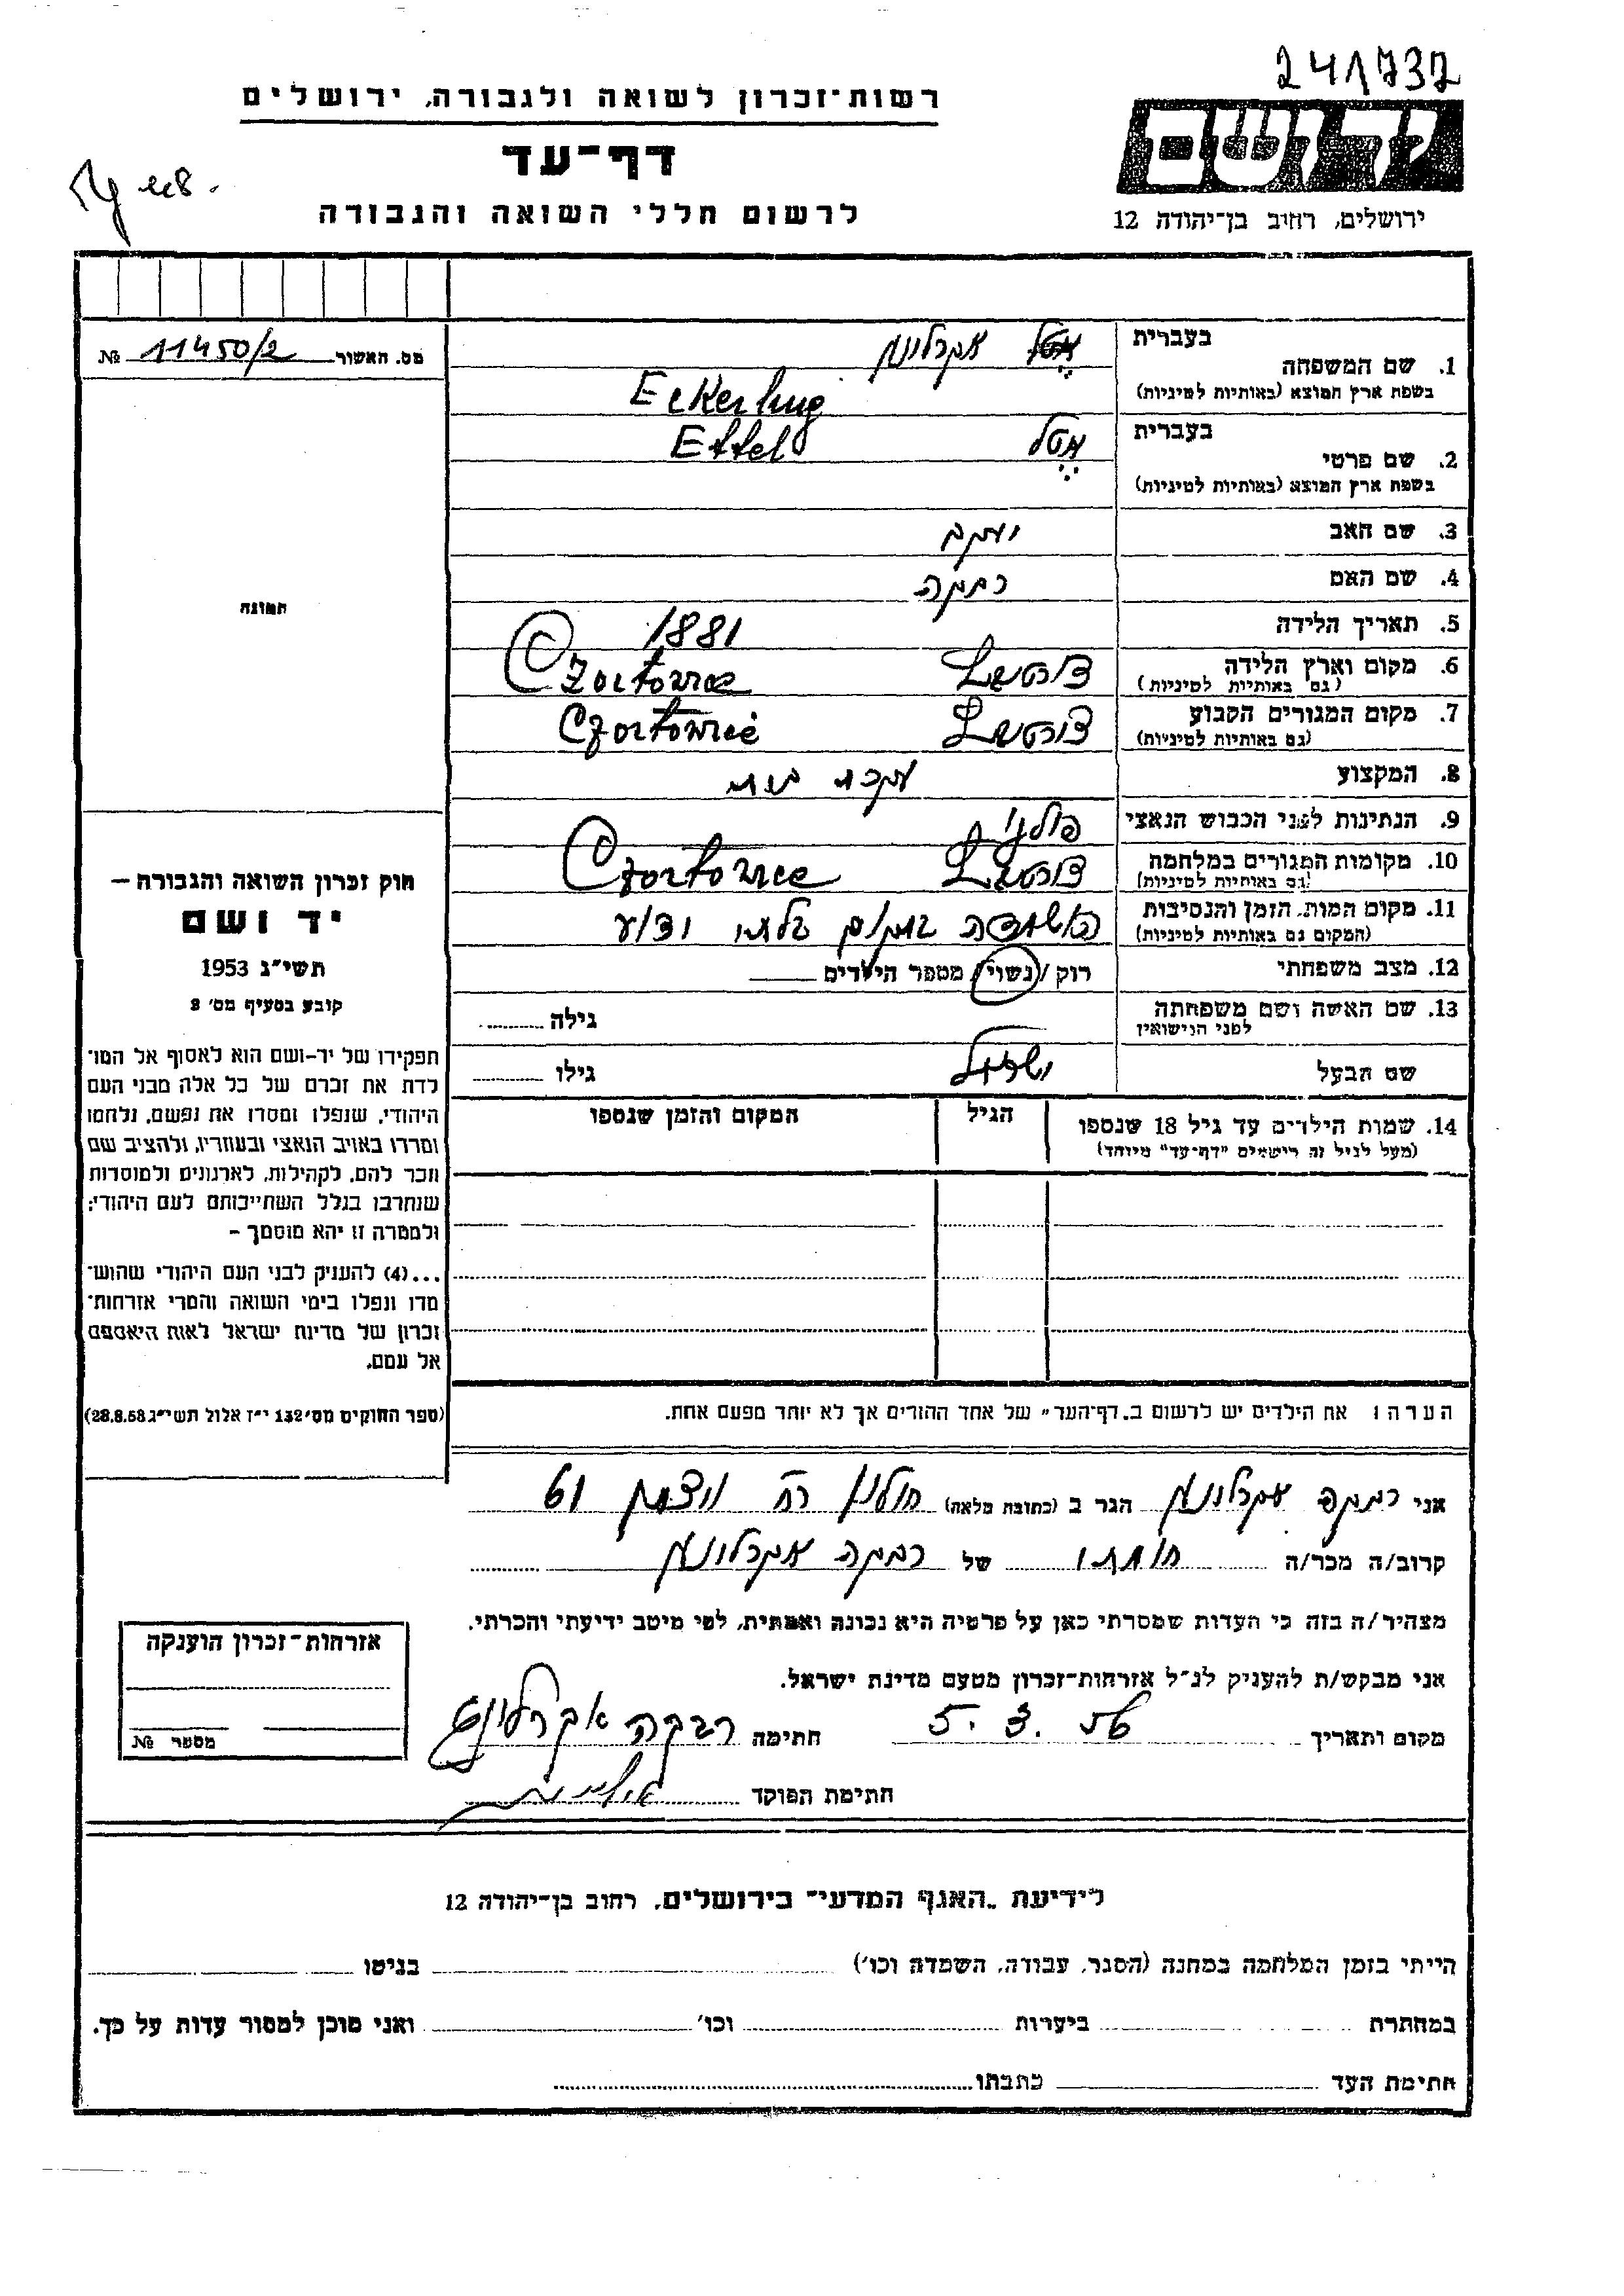 241737
רשות־זכרון לשואה ולגבורה, ירושלים
דף־עד
לרשום חללי השואה והגבורה
ירושלים, רחוב בן־יהודה 12
מס. האשור 11450/2 №
בעברית
אטל
1. שם המשפחה
בשפת ארץ המוצא (באותיות לטיניות)
Eckerling
בעברית אטל
2. שם פרטי
בשפת ארץ המוצא (באותיות לטיניות)
Ettel
3. שם האב יעקב
4. שם האם רבקה
5. תאריך הלידה 1881
6. מקום וארץ הלידה
(גם באותיות לטיניות)
7. מקום המגורים הקבוע
(גם באותיות לטיניות)
8. המקצוע עקרת בית
9. הנתינות לפני הכבוש הנאצי פולני
10. מקומות המגורים במלחמה
(גם באותיות לטיניות)
11. מקום המות, הזמן והנסיבות
(המקום גם באותיות לטיניות)
הושמדה במקום בלתי ידוע
12. מצב משפחתי רוק / נשוי / מספר הילדים
13. שם האשה ושם משפחתה
לפני הנישואין
גילה
שם הבעל ישראל גילו
14. שמות הילדים עד גיל 18 שנספו
(מעל לגיל זה רישמים "דף־עד" מיוחד)
הגיל
המקום והזמן שנספו
הערה: את הילדים יש לרשום ב„דף־העד" של אחד ההורים אך לא יותר מפעם אחת.
תמונה
חוק זכרון השואה והגבורה –
יד ושם
תשי"ג 1953
קובע בסעיף מס' 2
תפקידו של יד-ושם הוא לאסוף אל המו־
לדת את זכרם של כל אלה מבני העם
היהודי, שנפלו ומסרו את נפשם, נלחמו
ומרדו באויב הנאצי ובעוזריו, ולהציב שם
וזכר להם, לקהילות, לארגונים ולמוסדות
שנחרבו בגלל השתייכותם לעם היהודי;
ולמטרה זו יהא מוסמך –
...(4) להעניק לבני העם היהודי שהוש־
מדו ונפלו בימי השואה והמרי אזרחות־
זכרון של מדינת ישראל לאות היאספם
אל עמם.
(ספר החוקים מס' 132 י"ז אלול תשי"ג 28.8.53)
אני רבקה הגר ב (כתובת מלאה) חולון
קרוב/ה מכר/ה חותנתי של רבקה
מצהיר/ה בזה כי העדות שמסרתי כאן על פרטיה היא נכונה ואמתית, לפי מיטב ידיעתי והכרתי.
אני מבקש/ת להעניק לנ"ל אזרחות־זכרון מטעם מדינת ישראל.
מקום ותאריך 5. 3. 56 חתימה רבקה אקרלינג
חתימת הפוקד
אזרחות־זכרון הוענקה
מספר №
לידיעת „האגף המדעי" בירושלים, רחוב בן־יהודה 12
הייתי בזמן המלחמה במחנה (הסגר, עבודה, השמדה וכו') בגיטו
במחתרת ביערות וכו' ואני מוכן למסור עדות על כך.
חתימת העד כתבתו